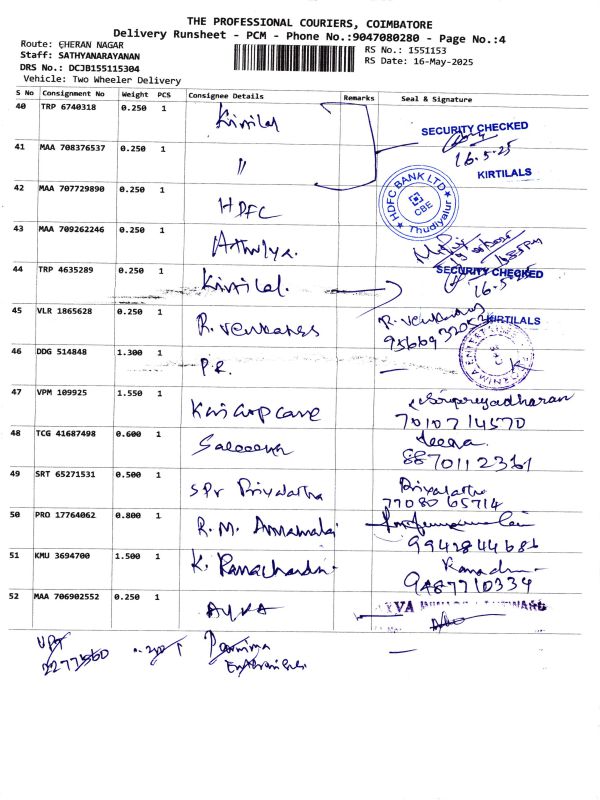 THE PROFESSIONAL COURIERS, COIMBATORE
Delivery Runsheet - PCM - Phone No.:9047080280 - Page No.:4
Route: CHERAN NAGAR
Staff: SATHYANARAYANAN
DRS No.: DCJB155115304
Vehicle: Two Wheeler Delivery
RS No.: 1551153
RS Date: 16-May-2025
S No Consignment No Weight PCS Consignee Details Remarks Seal & Signature
40 TRP 6740318 0.250 1 Kirtilal
SECURITY CHECKED
16.5.25
KIRTILALS
41 MAA 708376537 0.250 1 "
42 MAA 707729890 0.250 1 HDFC
HDFC BANK LTD
CBE
Thudiyalur
43 MAA 709262246 0.250 1 Athulya.
44 TRP 4635289 0.250 1 Kirtilal.
SECURITY CHECKED
16.5.25
KIRTILALS
45 VLR 1865628 0.250 1 R. Venkates
46 DDG 514848 1.300 1 P.E.
47 VPM 109925 1.550 1
7010714570
48 TCG 41687498 0.600 1
8870112361
49 SRT 65271531 0.500 1 SPr Priyadartha
7708065714
50 PRO 17764062 0.800 1 R.M. Annamalai
9942844686
51 KMU 3694700 1.500 1 K. Ramachandran
9487710334
52 MAA 706902552 0.250 1 AYVA
Purnima
Enterprises